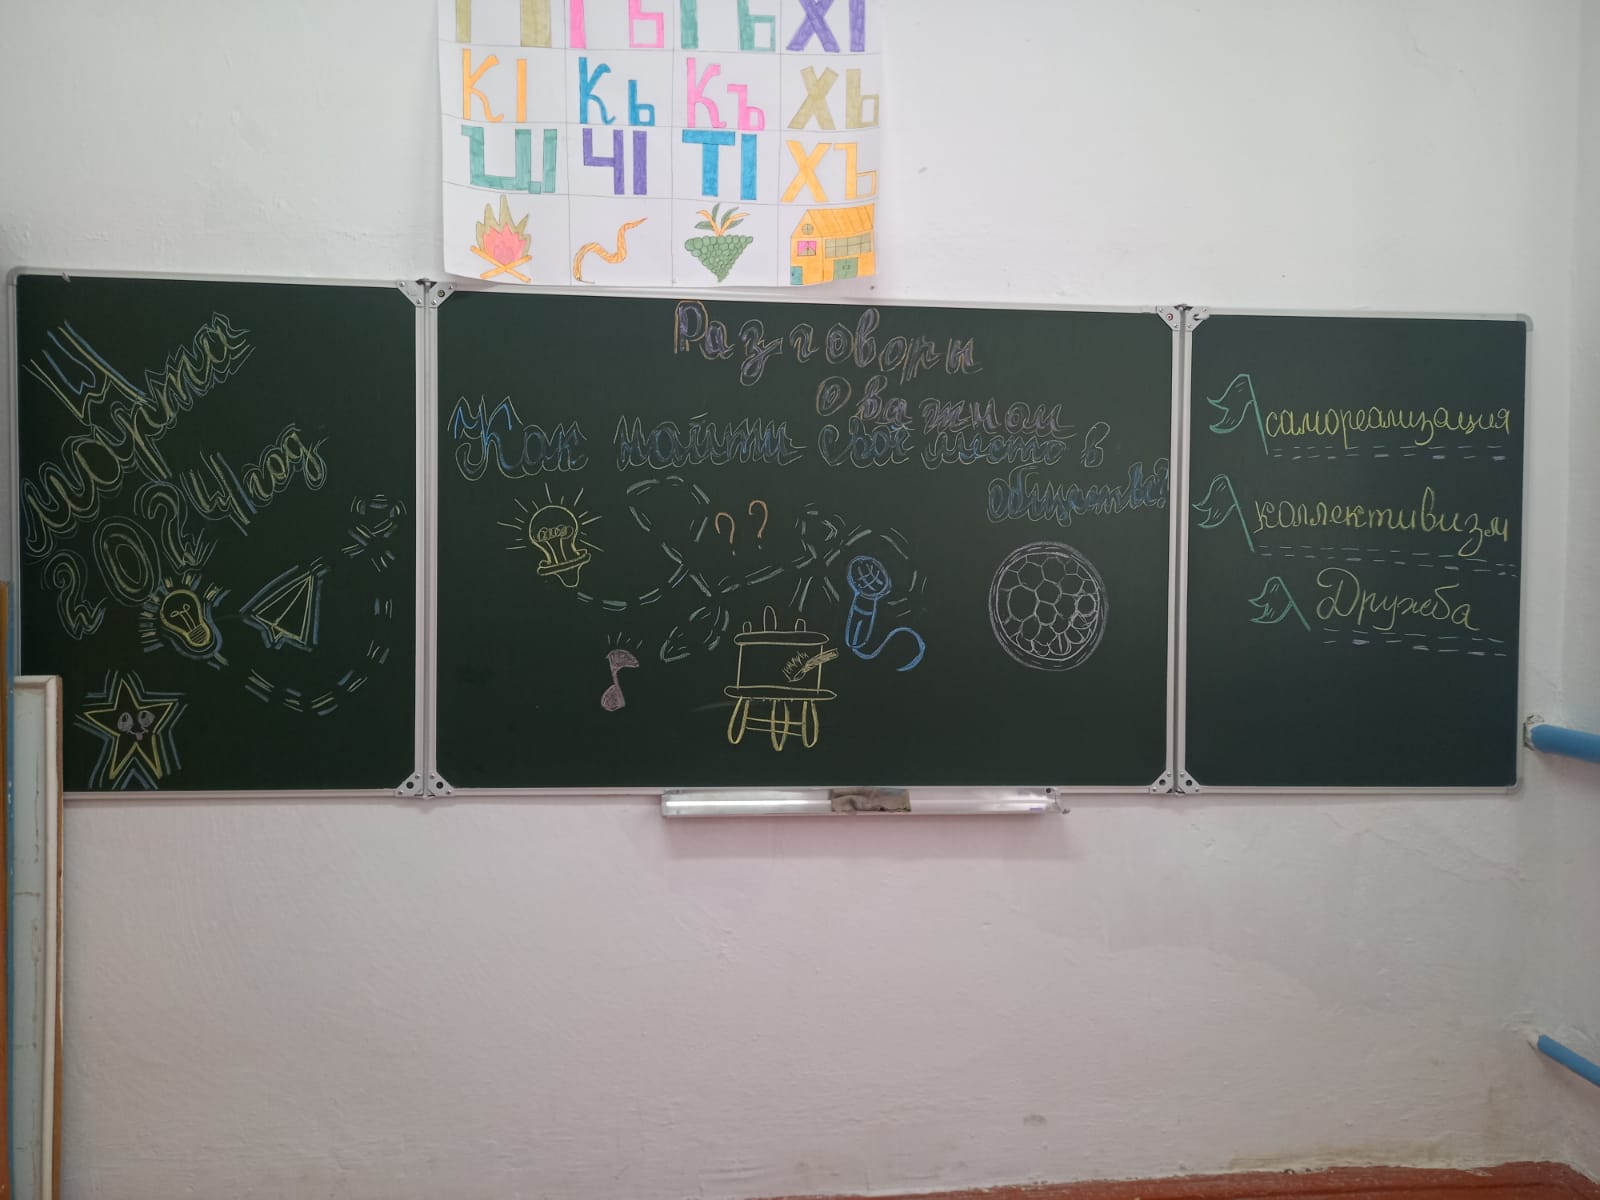 КI Кь Къ ХЬ
ЦI ЧI ТI ХЪ
4
марта
2024 год
Разговоры
о важном
Как найти своё место в
обществе?
? ?
самореализация
коллективизм
Дружба